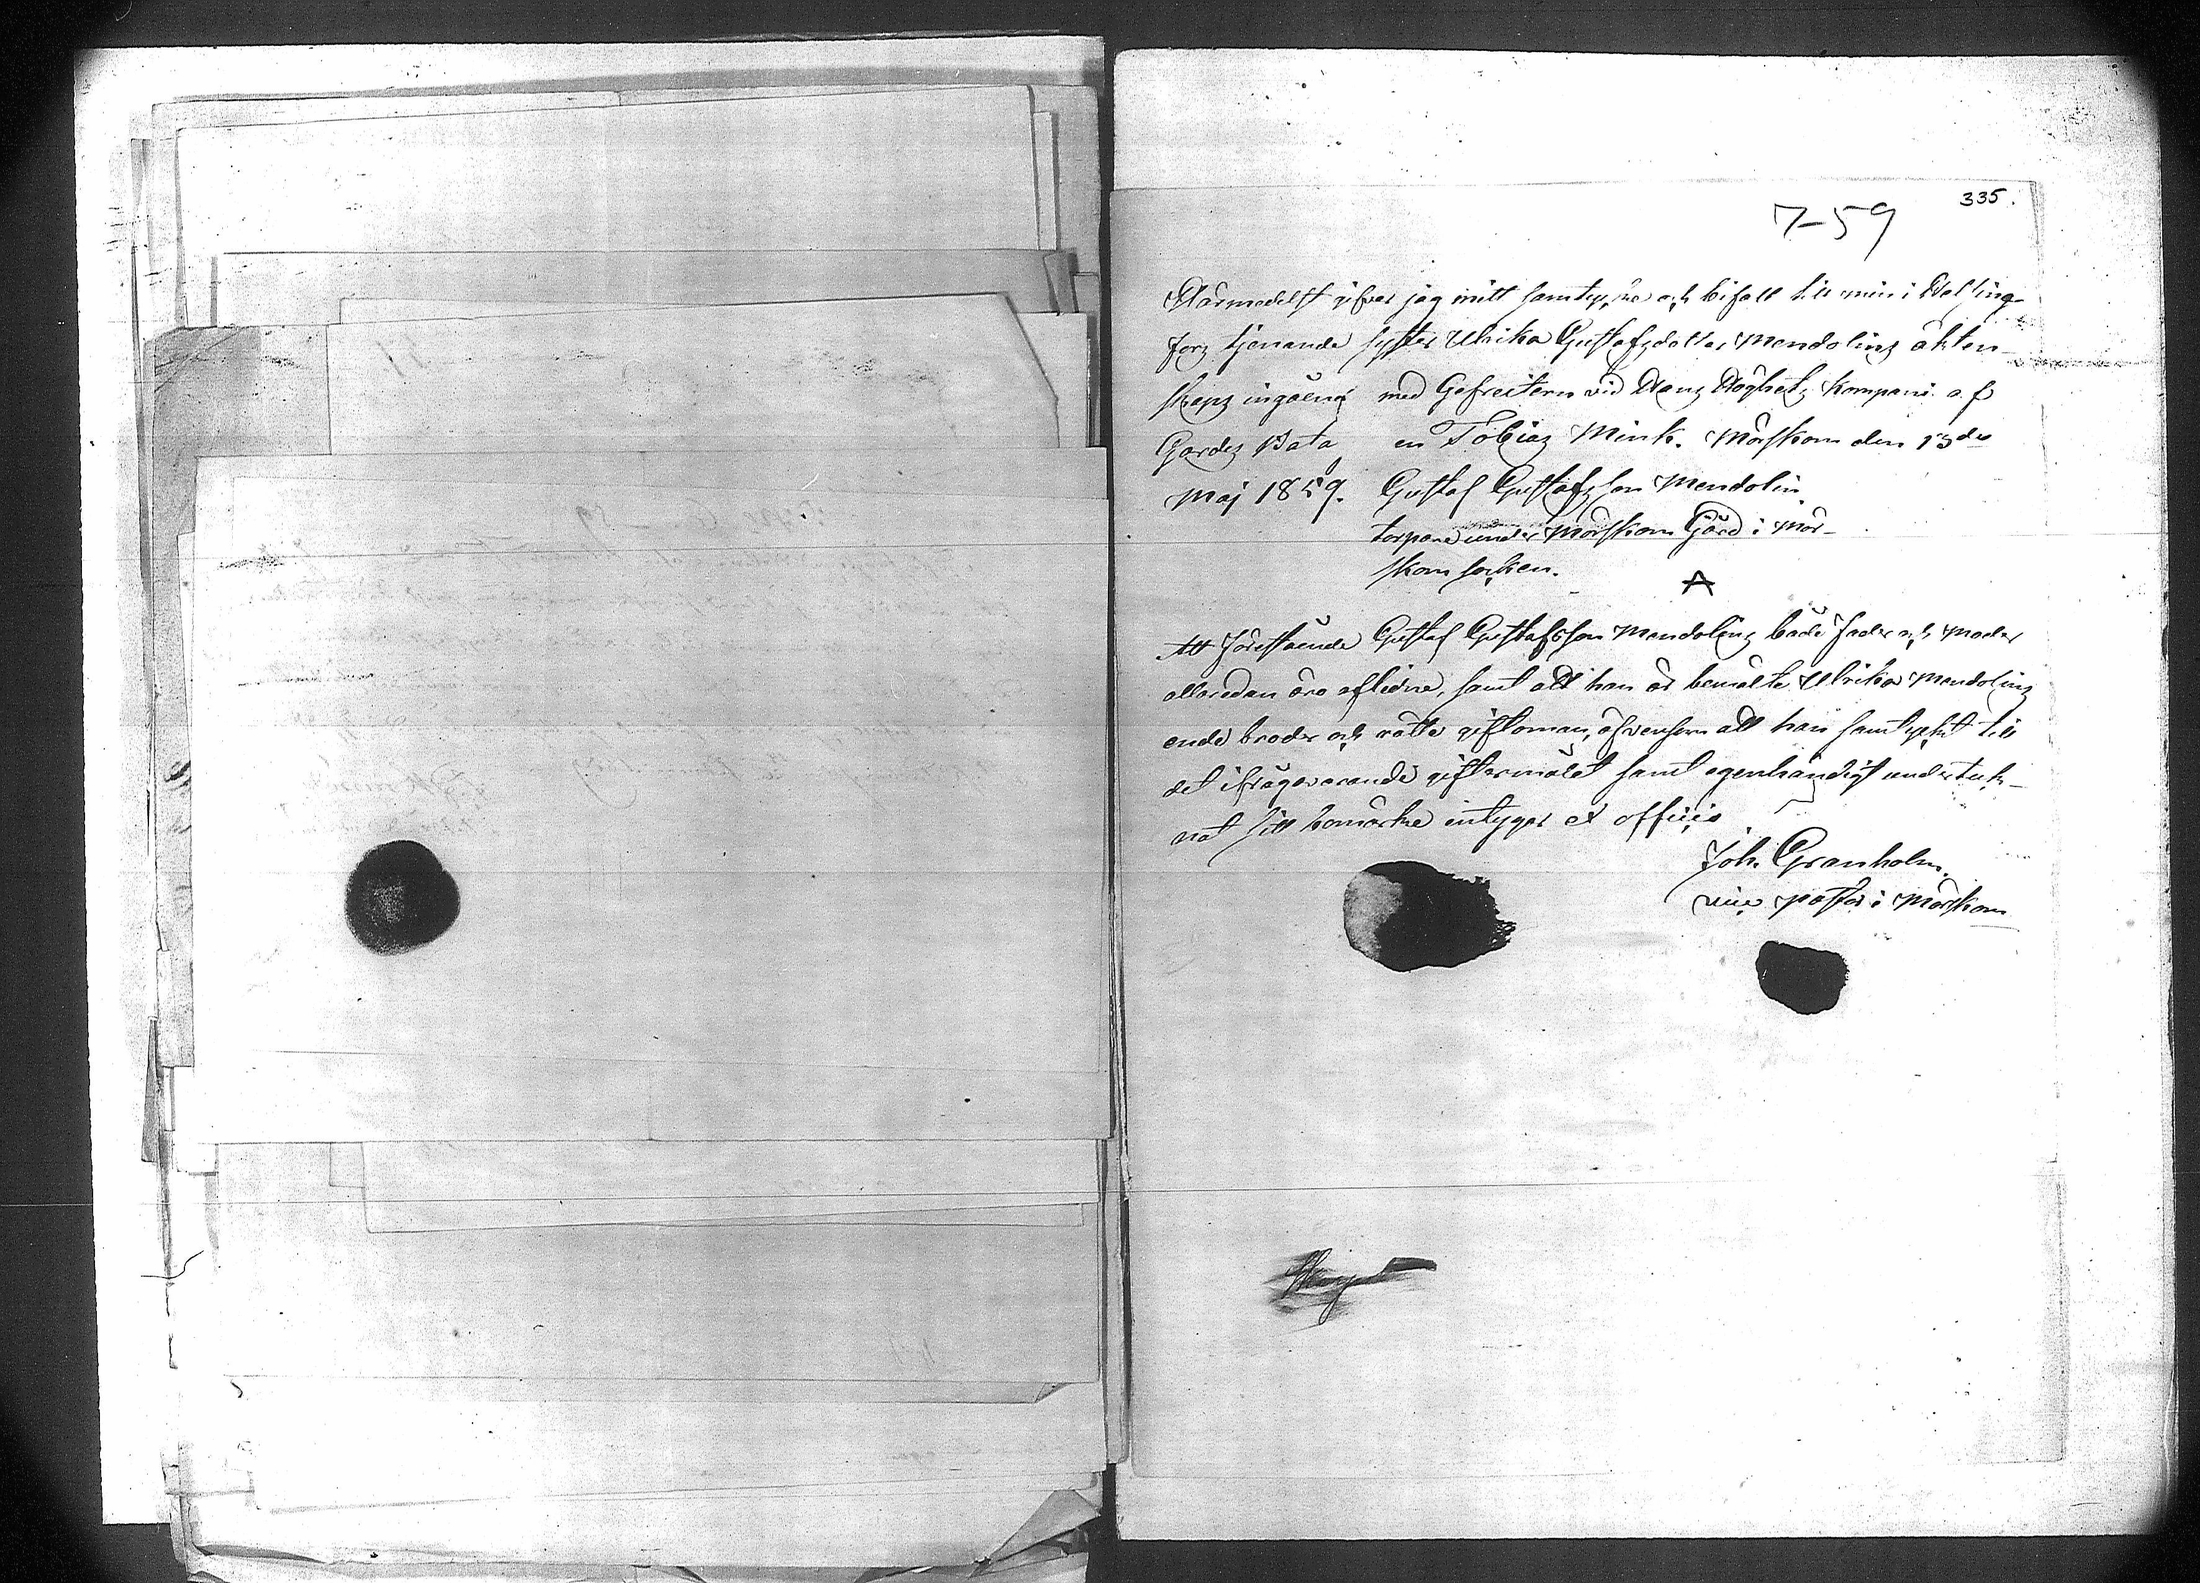 335.
7-59
Härmedelst gifver jag mitt samtycke och bifall till min i Helsing-
fors tjenande syster Ulrika Gustafsdotter Mendolins äkten-
skaps ingående med Gefreitern vid Hans Höghets Kompani af
Gardes Bata en Tobias Mink. Mörskom den 13de
Maj 1859. Gustaf Gustafsson Mendolin.
torpare under Mörskom Gård i Mör-
skom socken.
Att förestående Gustaf Gustafsson Mendolins både fader och moder
allaredan äro aflidne, samt att han är bemälte Ulrika Mendolins
enda broder och rätte giftoman, äfvensom att han samtyckt till
det ifrågavarande giftermålet samt egenhändigt undertek-
nat sitt bomärke intygar ex officio
Joh. Granholm.
vice pastor i Mörskom